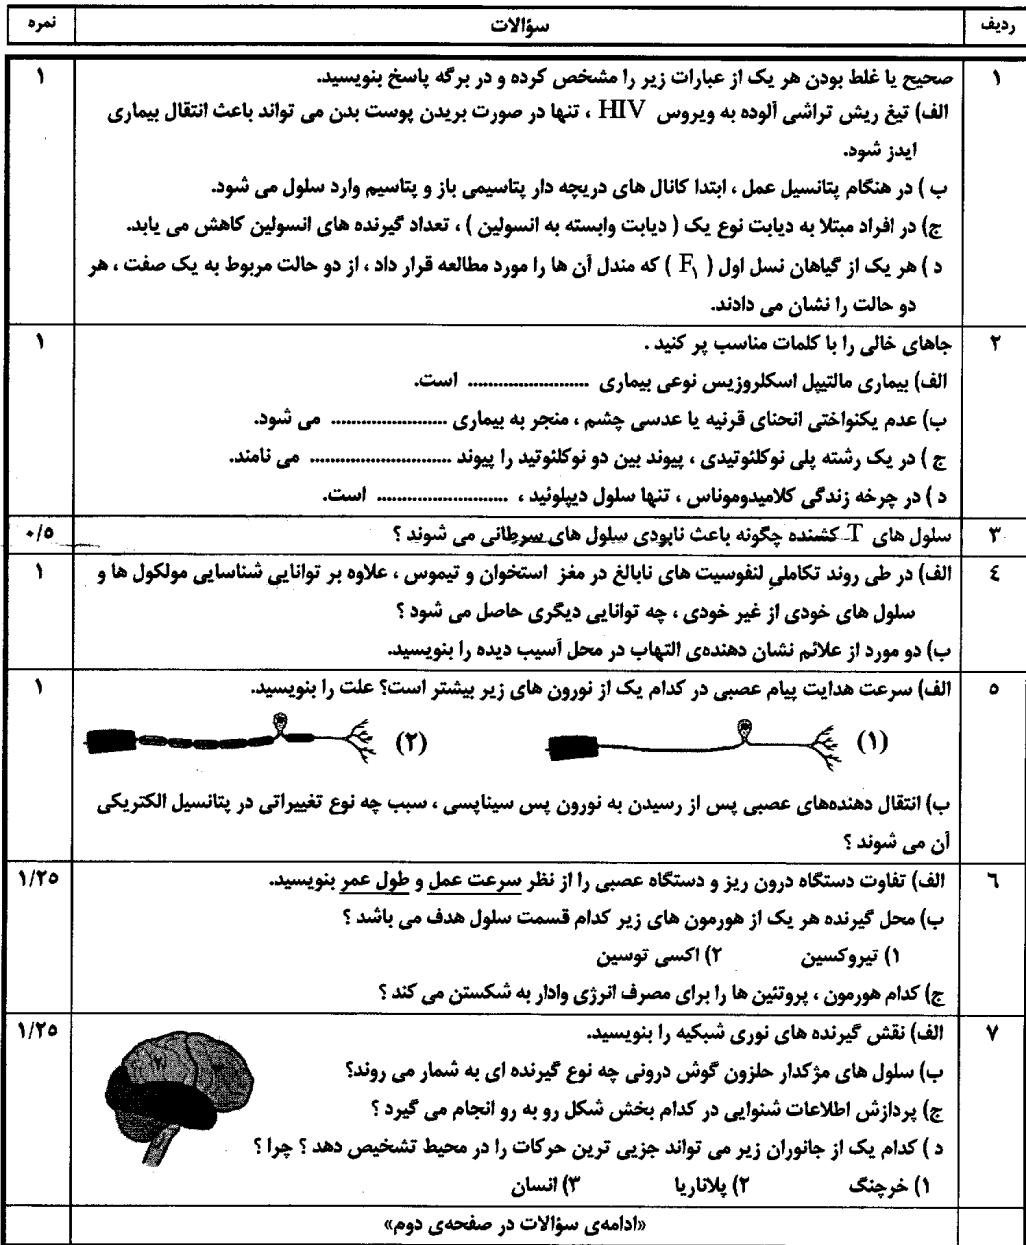 ردیف سؤالات نمره
۱ صحیح یا غلط بودن هر یک از عبارات زیر را مشخص کرده و در برگه پاسخ بنویسید. ۱
الف) تیغ ریش تراشی آلوده به ویروس HIV ، تنها در صورت بریدن پوست بدن می تواند باعث انتقال بیماری
ایدز شود.
ب ) در هنگام پتانسیل عمل ، ابتدا کانال های دریچه دار پتاسیمی باز و پتاسیم وارد سلول می شود.
ج) در افراد مبتلا به دیابت نوع یک ( دیابت وابسته به انسولین ) ، تعداد گیرنده های انسولین کاهش می یابد.
د ) هر یک از گیاهان نسل اول ( F۱ ) که مندل آن ها را مورد مطالعه قرار داد ، از دو حالت مربوط به یک صفت ، هر
دو حالت را نشان می دادند.
۲ جاهای خالی را با کلمات مناسب پر کنید . ۱
الف) بیماری مالتیپل اسکلروزیس نوعی بیماری ......................... است.
ب) عدم یکنواختی انحنای قرنیه یا عدسی چشم ، منجر به بیماری ........................ می شود.
ج ) در یک رشته پلی نوکلئوتیدی ، پیوند بین دو نوکلئوتید را پیوند ............................. می نامند.
د ) در چرخه زندگی کلامیدوموناس ، تنها سلول دیپلوئید ، ........................... است.
۳ سلول های T کشنده چگونه باعث نابودی سلول های سرطانی می شوند ؟ ۰/۵
۴ الف) در طی روند تکاملی لنفوسیت های نابالغ در مغز استخوان و تیموس ، علاوه بر توانایی شناسایی مولکول ها و ۱
سلول های خودی از غیر خودی ، چه توانایی دیگری حاصل می شود ؟
ب) دو مورد از علائم نشان دهنده‌ی التهاب در محل آسیب دیده را بنویسید.
۵ الف) سرعت هدایت پیام عصبی در کدام یک از نورون های زیر بیشتر است؟ علت را بنویسید. ۱
(۱) (۲)
ب) انتقال دهنده‌های عصبی پس از رسیدن به نورون پس سیناپسی ، سبب چه نوع تغییراتی در پتانسیل الکتریکی
آن می شوند ؟
۶ الف) تفاوت دستگاه درون ریز و دستگاه عصبی را از نظر سرعت عمل و طول عمر بنویسید. ۱/۲۵
ب) محل گیرنده هر یک از هورمون های زیر کدام قسمت سلول هدف می باشد ؟
۱) تیروکسین ۲) اکسی توسین
ج) کدام هورمون ، پروتئین ها را برای مصرف انرژی وادار به شکستن می کند ؟
۷ الف) نقش گیرنده های نوری شبکیه را بنویسید. ۱/۲۵
ب) سلول های مژکدار حلزون گوش درونی چه نوع گیرنده ای به شمار می روند؟
ج) پردازش اطلاعات شنوایی در کدام بخش شکل رو به رو انجام می گیرد ؟
د ) کدام یک از جانوران زیر می تواند جزیی ترین حرکات را در محیط تشخیص دهد ؟ چرا ؟
۱) خرچنگ ۲) پلاناریا ۳) انسان
«ادامه‌ی سؤالات در صفحه‌ی دوم»